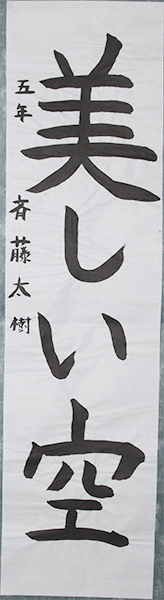 美しい空
五年 斉藤太樹